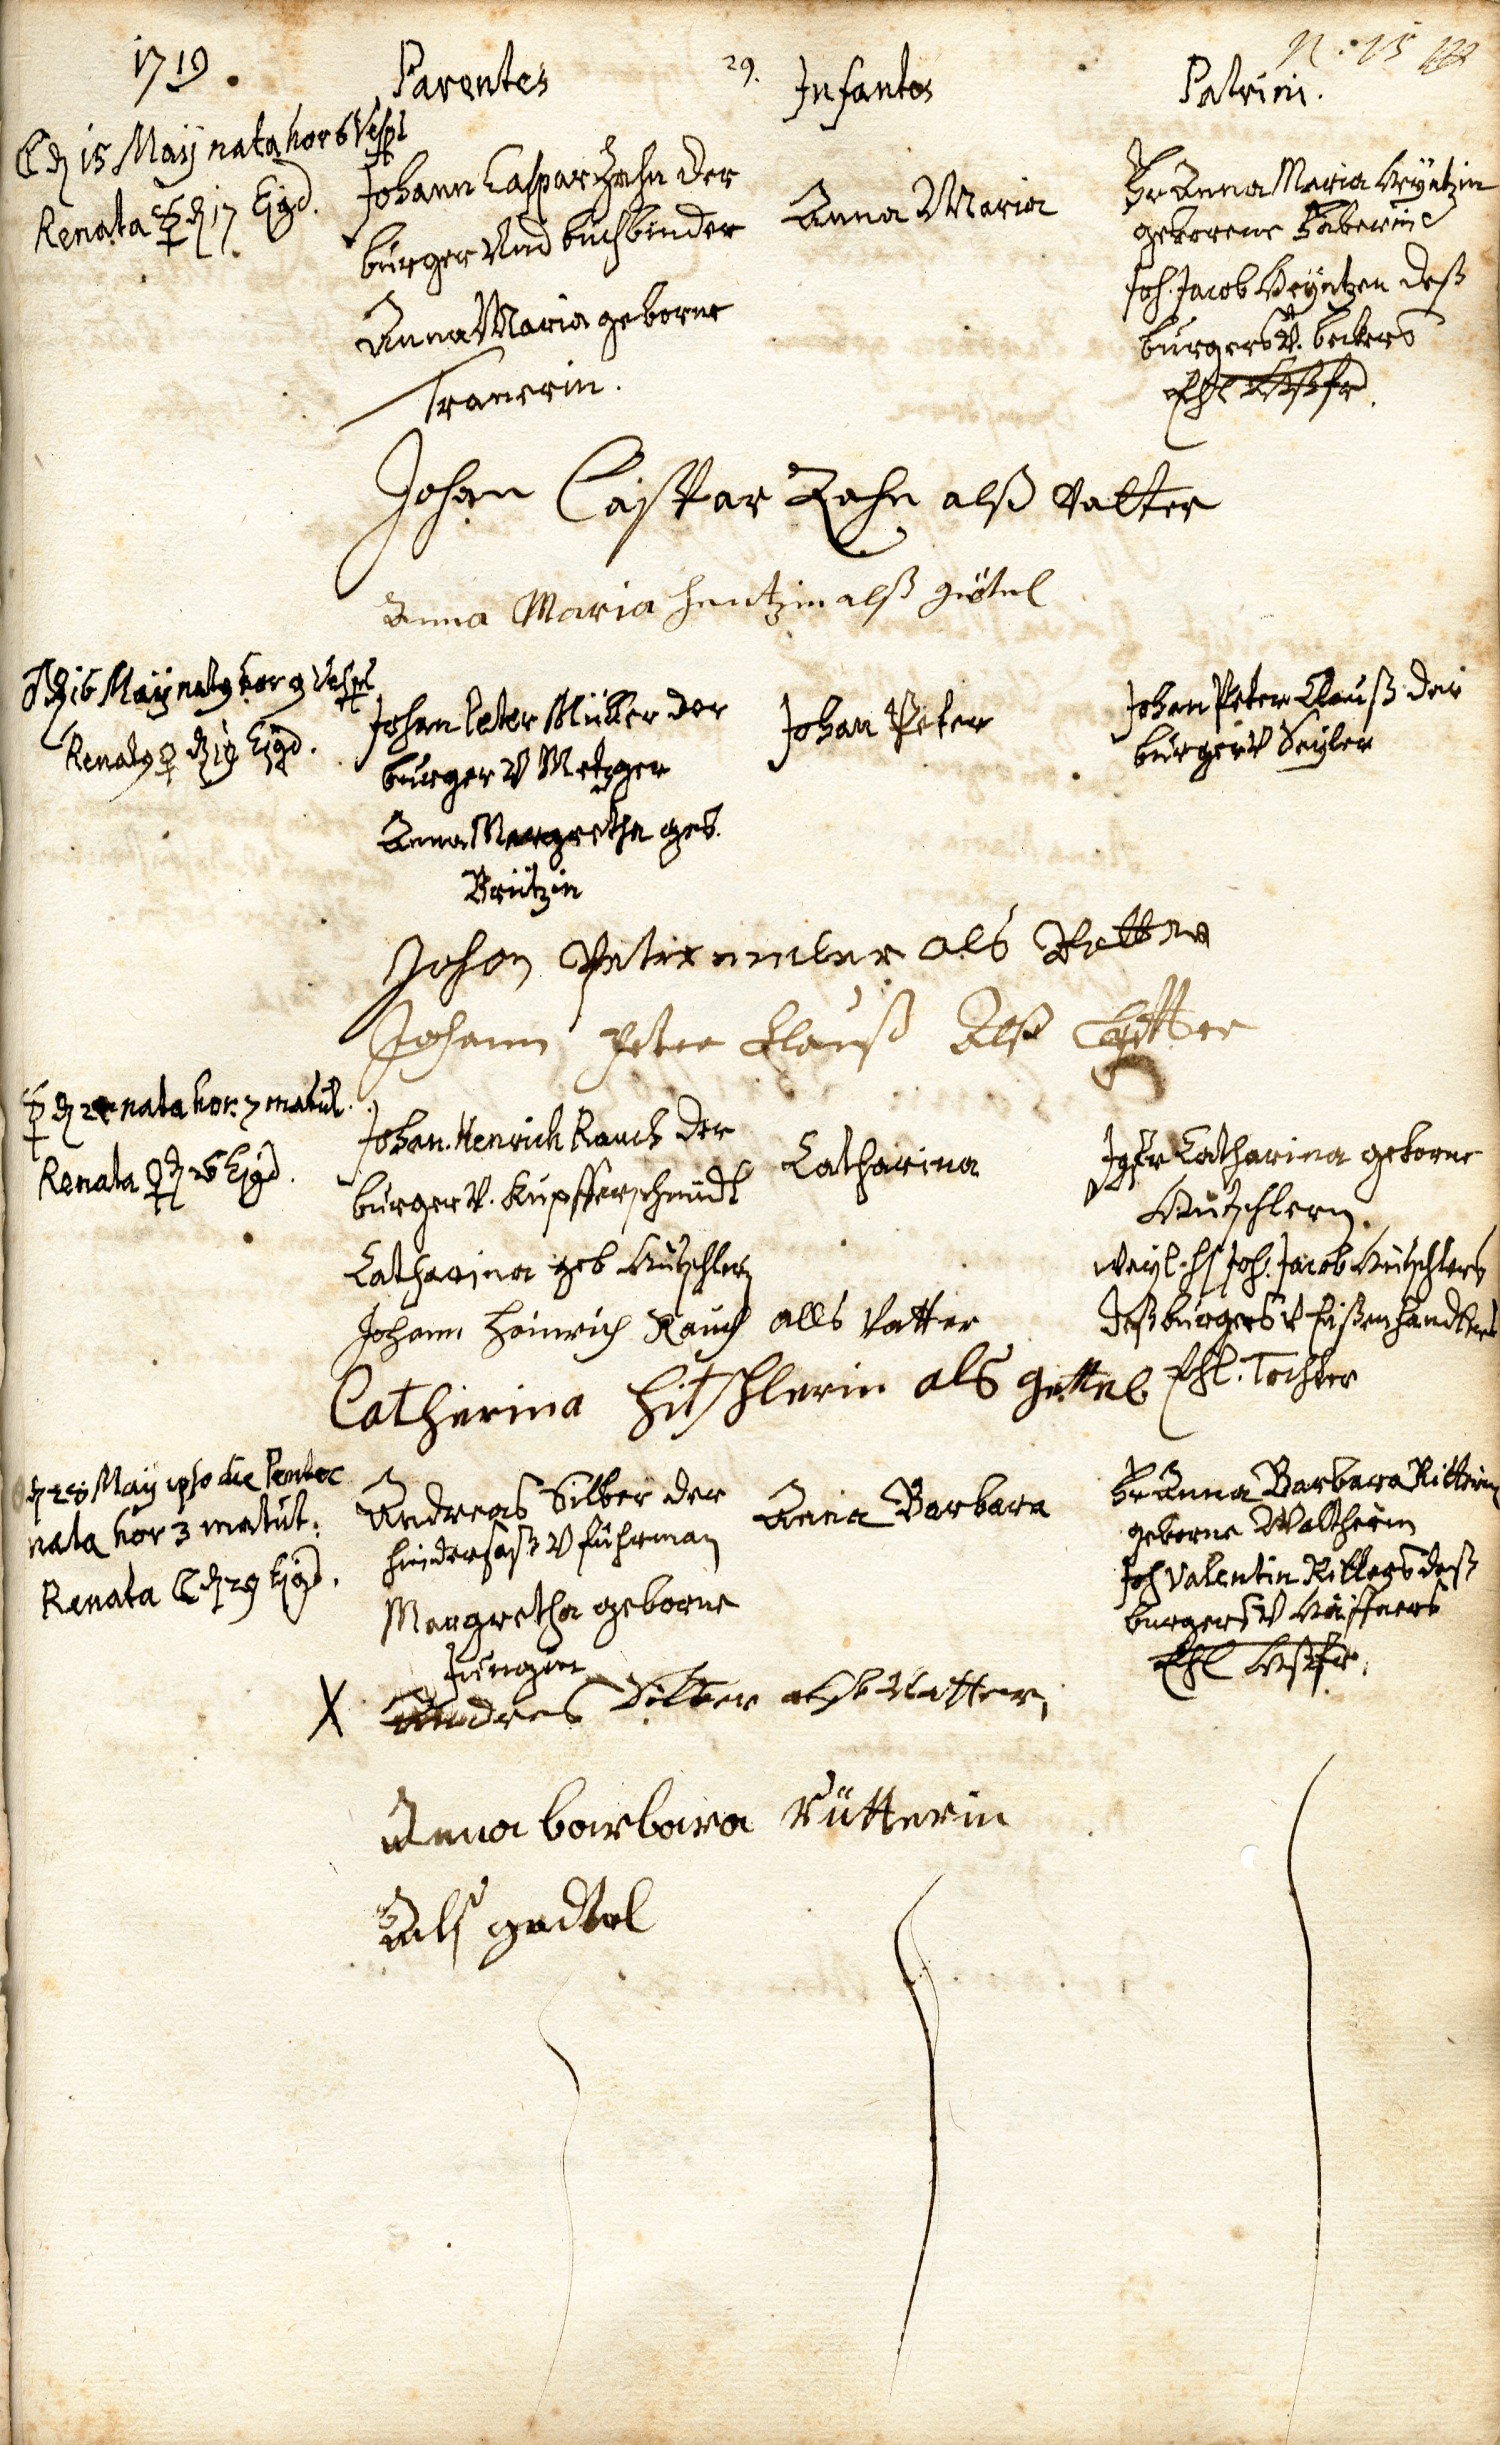 1719. Parentes 29. Infantes Patrini.
N. 25
☾ d 15 Maÿ nata hor 6 Vesp
Renata ☿ d 17 Ejgd.
Johann Caspar Zahn der
burger Und buchbinder
Anna Maria geborne
Tranerin.
Anna Maria
Fr Anna Maria
geborene Faberin
Joh. Jacob deß
burgers V. beckers
Ehl
Johan Caspar Zahn alß Vatter
Anna Maria hentzin alß götel
♂ d 16 Maÿ nat9 hor 9 Vesp
Renat9 ♀ d 19 Ejgd.
Johan Peter Müller der
burger V Metzger
Anna Margretha geb.
Brützin
Johan Peter
Johan Peter Clauß der
burger V Seyler
Johan Peter als
Johann Peter Clauß Alß
☿ d 24 nata hor. 7 matut.
Renata ♀ d 26 Ejgd.
Johan. Henrich Rauch der
burger V. Kupfferschmidt
Catharina geb Hütschlern
Catharina
Jgfr Catharina geborne
Hütschlern.
weyl. H Joh. Jacob Hütschlers
deß burgers V Eißenhändlers
Ehl. Tochter
Johann Heinrich Rauch alls Vatter
Catherina Hitschlerin als gettel
d 28 Maÿ ipso die Pentec
nata hor 3 matut.
Renata ☾ d 29 Ejgd.
Andreas Silber der
hindersaß V fuhrman
Margretha geborne
Jüngin
Anna Barbara
Fr Anna Barbara Ritterin
geborne Waltherin
Joh Valentin Ritters deß
burgers V
Ehl
X Andres Silber alß Vatter,
Anna barbara Rütterin
Alß gedtel